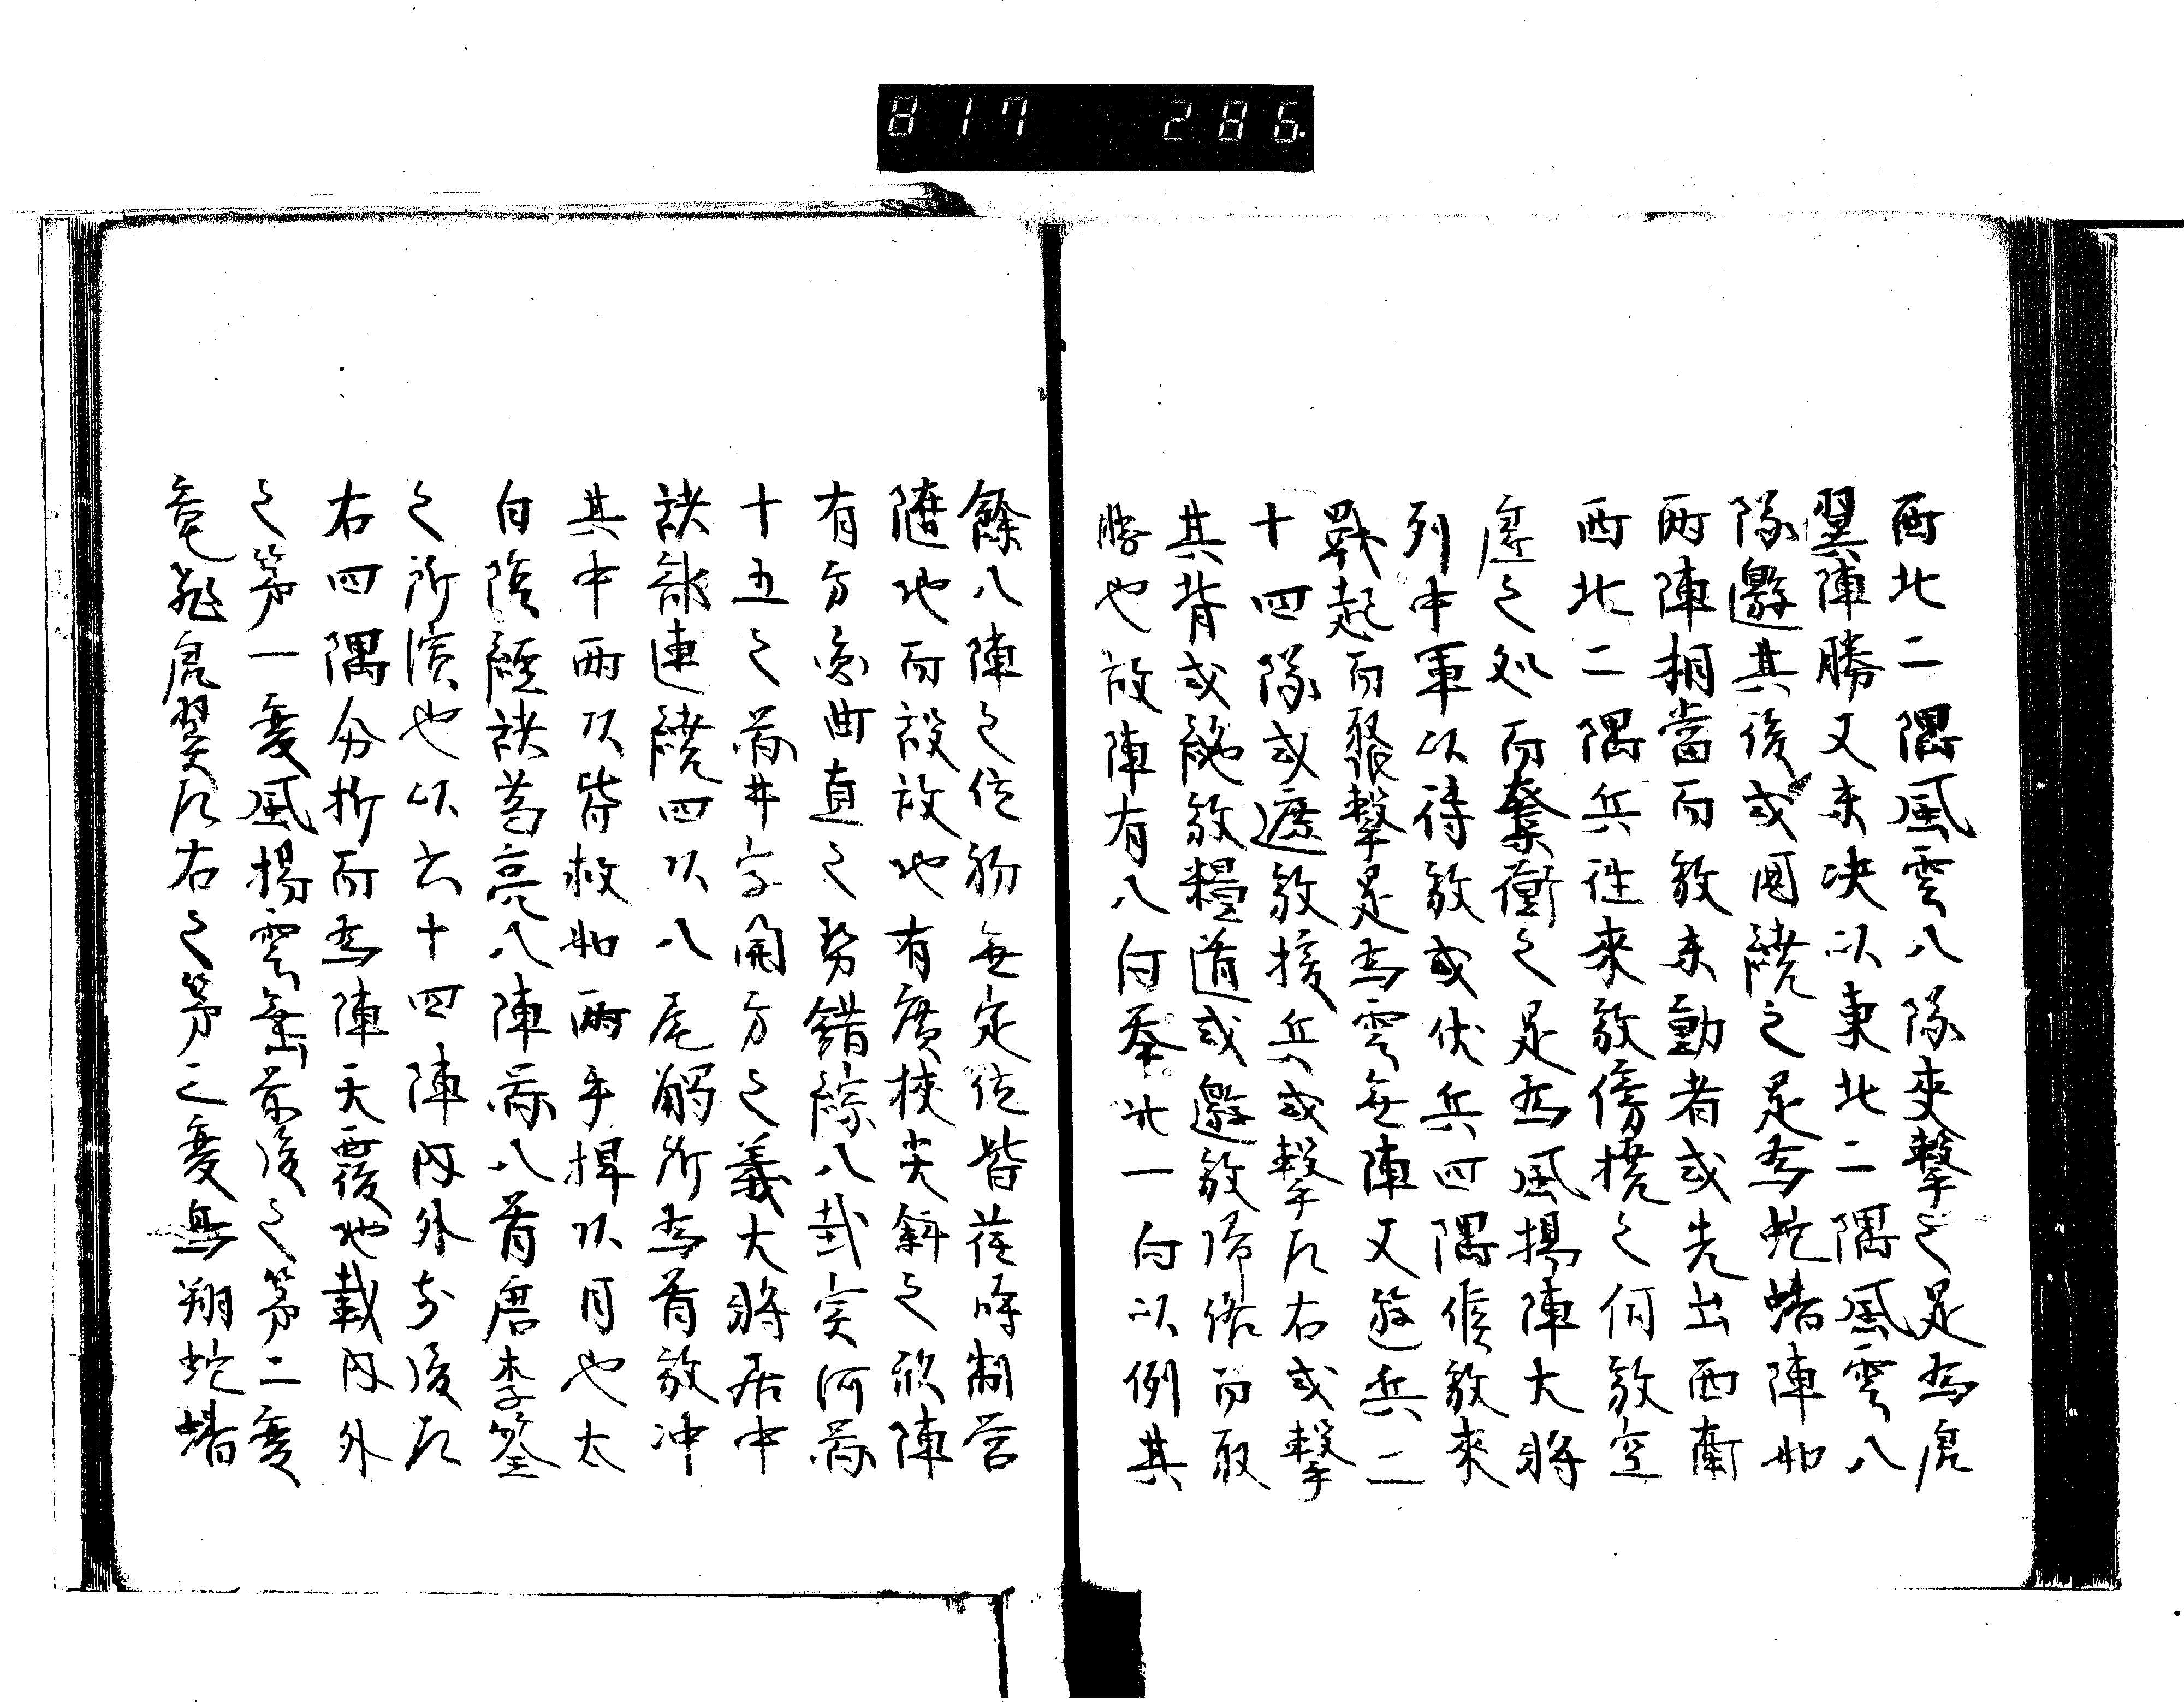 817 286
西北二隅風雲八隊夾擊之是為虎
翼陣勝又未决以東北二隅風雲八
隊邀其後或囘繞之是為蛇蟠陣如
兩陣相當而敵未動者或先出西南
西北二隅兵往來敵傍撓之伺敵空
虛之処而衝之是為風揚陣大將
列中軍以待敵或伏兵四隅候敵來
戰起而聚擊是為雲垂陣又遊兵二
十四隊或遮敵援兵或擊左右或擊
其背或絶敵糧道或邀敵歸路而取
勝也故陣有八向奉此一向以例其
餘八陣之位初無定位皆在時制营
隨地而設故地有廣狹尖斜之形陣
有方圓曲直之勢錯綜八卦実河啚
十五之啚井字開方之義大將居中
訣部連繞四頭八尾觸所為首敵冲
其中兩頭皆救如兩手捍頭目也太
白陰經訣葛亮八陣啚八首唐李筌
之所演也以六十四陣内外前後左
右四隅分折而為陣天覆地載内外
之第一变風揚雲垂前後之第二变
竜飛虎翼左右之第三变鳥翔蛇蟠